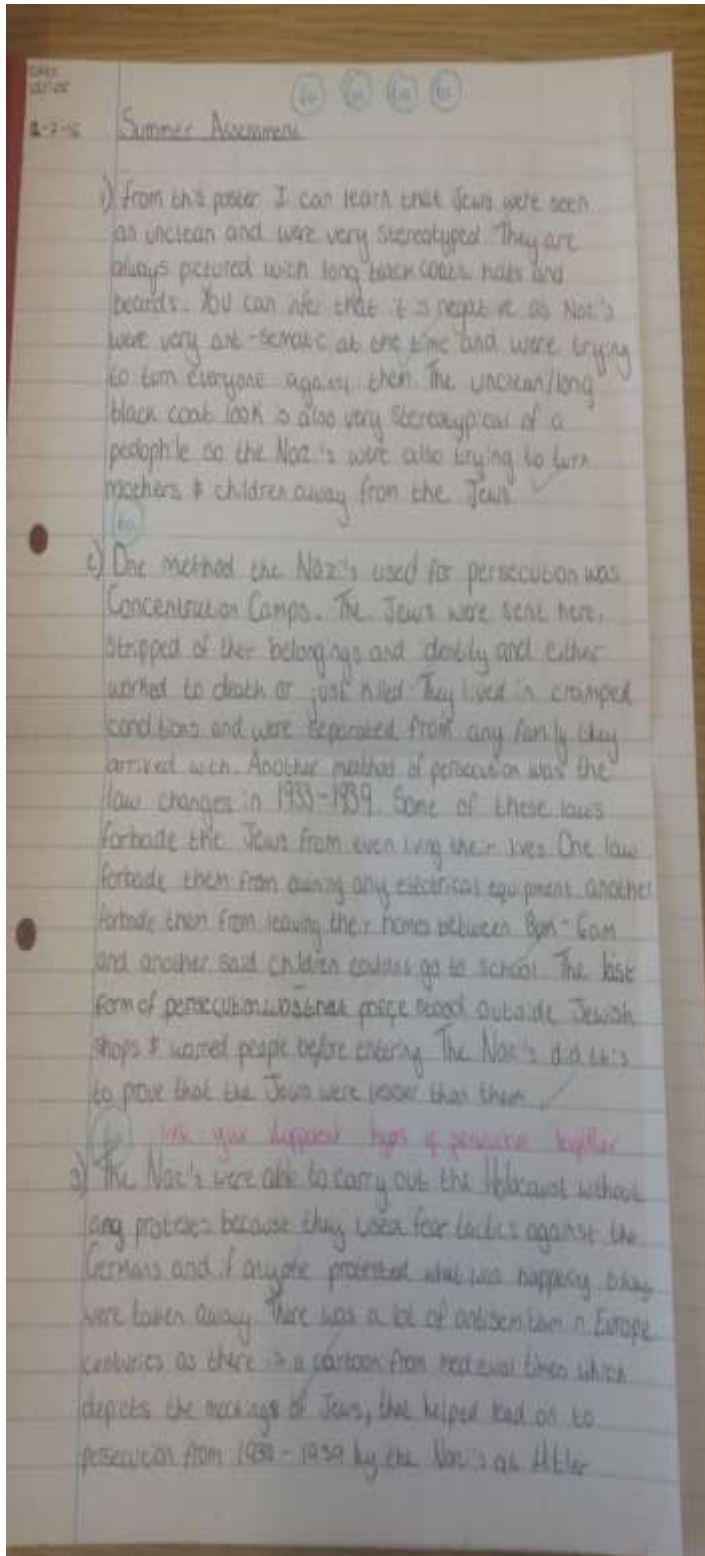 6a 6a 6a
Summer Assessment
1) From this poster I can learn that Jews were seen
as unclean and were very stereotyped. They are
always pictured with long black coats, hats and
beards. You can infer that it is negative as Nazi's
were very at the time and were trying
to turn everyone against them. The unclean/long
black coat look is also very stereotypical of a
pedophile so the Nazi's were also trying to turn
mothers & children away from the Jews
6a
One method the Nazi's used for persecution was
Concentration Camps. The Jews were sent here,
stripped of their belongings and identity and either
worked to death or just killed. They lived in cramped
conditions and were separated from any family they
arrived with. Another method of persecution was the
law changes in 1933-1939. Some of these laws
forbade the Jews from even living their lives. One law
forbade them from owning any electrical equipment, another
forbade them from leaving their homes between 8pm-6am
and another said children couldn't go to school. The last
form of persecution was that police stood outside Jewish
shops & warned people before entering. The Nazi's did this
to prove that the Jews were lesser than them
link your different types of persecution together
3) The Nazi's were able to carry out the Holocaust without
any protests because they used fear tactics against the
Germans and if anyone protested what was happening they
were taken away. There was a lot of antisemitism in Europe
centuries as there is a cartoon from medieval times which
depicts the of Jews, that helped lead on to
persecution from 1933-1939 by the Nazi's as Hitler